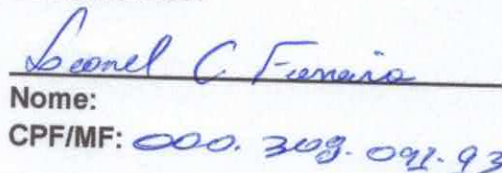 Leonel C Ferreira
Nome:
CPF/MF: 000. 309. 091. 93